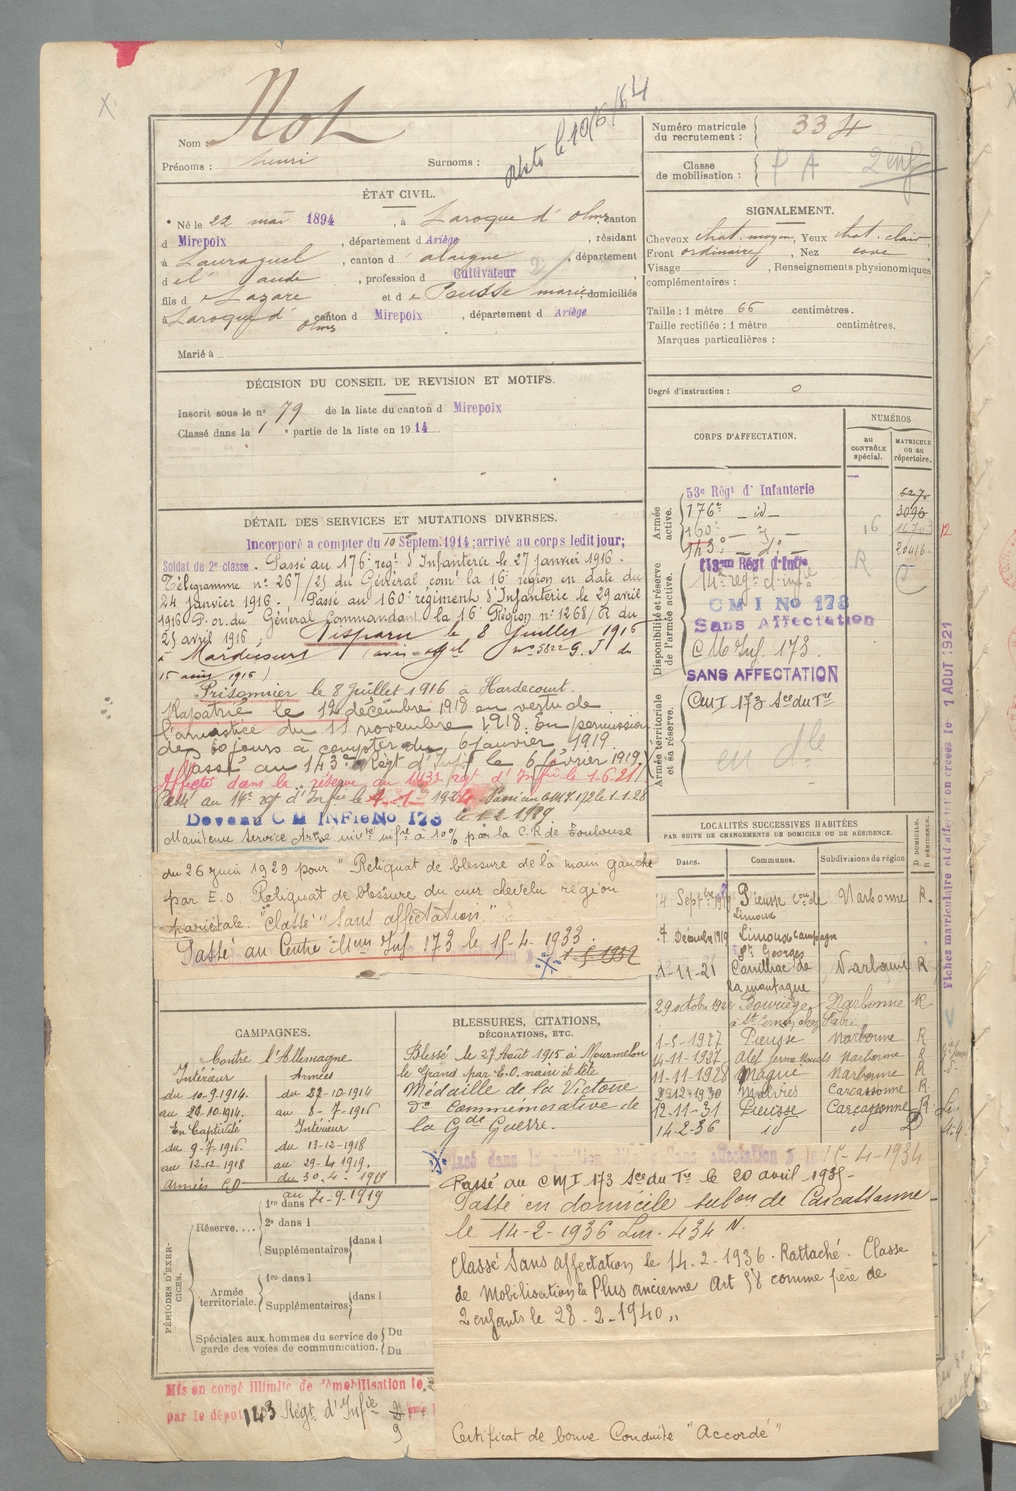 Nom : Not
Prénoms : Henri Surnoms :
Numéro matricule du recrutement : 334
Classe de mobilisation : P A 2 enf
ÉTAT CIVIL.
Né le 22 mai 1894, à Laroque d' Olmes canton
d Mirepoix, département d Ariège, résidant
à Lauraguel, canton d' alaigne, département
d el' aude, profession d Cultivateur
fils d e Lazare et d e Pousse marie domiciliés
à Laroque d' Olmes canton d Mirepoix, département d Ariège
Marié à
SIGNALEMENT.
Cheveux chat. moyen, Yeux chat. clair
Front ordinaire, Nez cave
Visage , Renseignements physionomiques
complémentaires :
Taille : 1 mètre 66 centimètres.
Taille rectifiée : 1 mètre centimètres.
Marques particulières :
Degré d'instruction : 0
DÉCISION DU CONSEIL DE REVISION ET MOTIFS.
Inscrit sous le n° 79 de la liste du canton d Mirepoix
Classé dans la 1e partie de la liste en 1914
CORPS D'AFFECTATION.
NUMÉROS
au contrôle spécial.
MATRICULE ou au répertoire.
Armée active.
53e Régt d' Infanterie
176e _ id _
160e
143e
Disponibilité et réserve de l'armée active.
14e regt d'infie
C M I No 173
Sans Affectation
C M Inf. 173.
SANS AFFECTATION
Armée territoriale et sa réserve.
CMI 173 Son du Tre
en dle
DÉTAIL DES SERVICES ET MUTATIONS DIVERSES.
Incorporé a compter du 10 Septem. 1914; arrivé au corps ledit jour;
Soldat de 2e classe. Passé au 176e regt d'Infanterie le 27 janvier 1916.
Télegramme n° 267/2S du Général comt la 16e region en date du
24 janvier 1916. Passé au 160e régiment d'Infanterie le 29 avril
1916 P. or. du Général Commandant la 16e Région n° 1268/R du
25 avril 1916; Disparu le 8 Juillet 1916
à Hardecourt
15 août 1916)
Prisonnier le 8 Juillet 1916 à Hardecourt.
Rapatrié le 12 décembre 1918 en vertu de
l'armistice du 11 novembre 1918. En permission
de 60 jours à compter du 6 janvier 1919.
Passé au 143e Régt d'Infie le 6 février 1919.
Affecté dans la réserve au 143e regt d'Infie le 1.6.21
Devenu C M INFie No 173 le 1.2.1929
Maintenu Service Armé invte infre à 10% par la C.R. de Toulouse
du 26 juin 1929 pour " Reliquat de blessure de la main gauche
par E.O Reliquat de blessure du cuir chevelu région
pariétale. Classé "sans affectation."
Passé au Centre Mun Inf 173 le 15-4-1933.
LOCALITÉS SUCCESSIVES HABITÉES
PAR SUITE DE CHANGEMENTS DE DOMICILE OU DE RÉSIDENCE.
Dates. Communes. Subdivisions de région D DOMICILE. R RÉSIDENCE.
Pieusse con de Limoux Narbonne R.
Décembre 1919 Limoux campagne St Georges
1-11-21 Camilhac de la montagne Narbonne R
29 octobre Narbonne R
1-5-1927 Pieusse Narbonne R
14-11-1927 Narbonne R
11-11-1928 Magrie Narbonne R
1930 Malvies Carcassonne R
12-11-31 Pieusse Carcassonne R
14-2-36 id id D
Fiches matriculaire et d'affectation créées le 1 AOUT 1921
CAMPAGNES.
Contre l'Allemagne
Intérieur
du 10-9-1914.
au 20-10-1914.
En Captivité
du 9-7-1916.
au 12-12-1918
Armées
du 22-10-1914
au 8-7-1916
Intérieur
du 13-12-1918
au 29-4-1919.
Armées CD du 30-4-1919
au 4-9-1919
BLESSURES, CITATIONS,
DÉCORATIONS, ETC.
Blessé le 27 Août 1915 à Mourmelon
le Grand par E.O. main et tête
Médaille de la Victoire
do Commémorative de
la Gde Guerre.
PÉRIODES D'EXERCICES.
Réserve....
1re dans l
2e dans l
Supplémentaires dans l
Armée territoriale.
1re dans l
Supplémentaires dans l
Spéciales aux hommes du service de garde des voies de communication.
Du
Du
Passé au CMI 173 Son du Tre le 20 avril 1935
Passé en domicile subon de Carcassonne
le 14-2-1936 Lm. 434 N.
Classé Sans affectation le 14.2.1936. Rattaché. Classe
de Mobilisation la Plus ancienne Art 58 comme père de
2 enfants le 28-2-1940
Certificat de bonne Conduite "Accordé"
Mis en congé illimité de démobilisation le
par le dépôt 143 Régt d'Infie